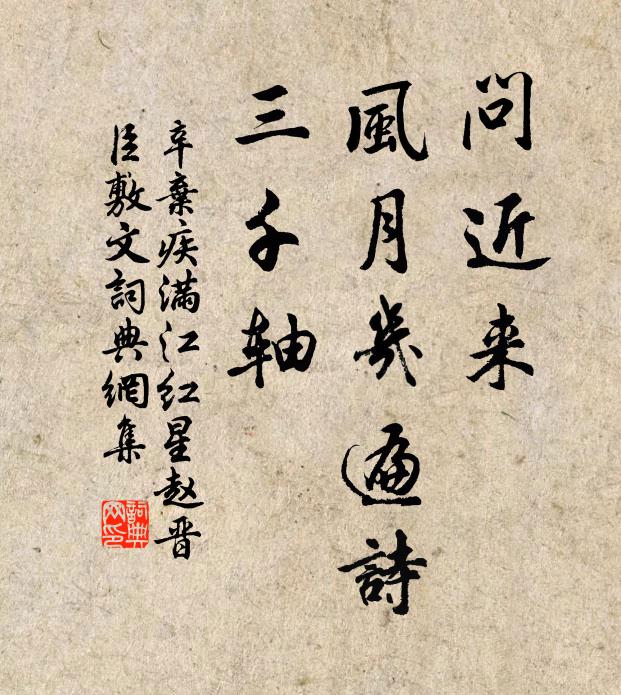 問近来
風月幾遍詩
三千轴
辛棄疾满江红星赵晋
臣敷文詞典網集
詞典
网印